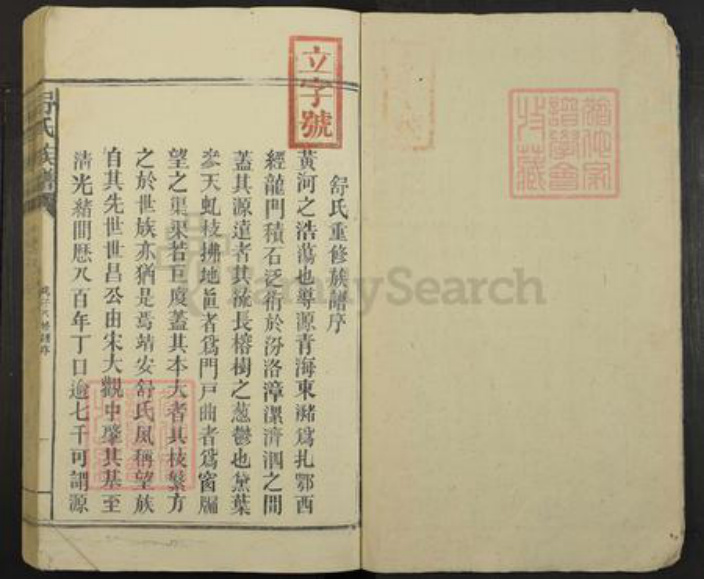 立字號
舒氏重修族譜序
黃河之浩蕩也導源青海東瀦為扎鄂西
經龍門積石泛衍於汾洛漳漯濟泗之間
蓋其源遠者其流長榕樹之葱鬱也黛葉
參天虬枝拂地直者為門戶曲者為窗牖
望之渠渠若巨廈蓋其本大者其枝繁方
之於世族亦猶是焉靖安舒氏夙稱望族
自其先世世昌公由宋大觀中肇其基至
清光緒間歷八百年丁口逾七千可謂源
舒氏族譜
FamilySearch